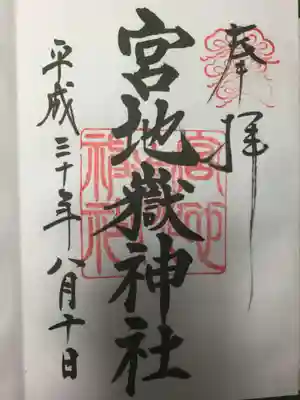 奉拝
宮地嶽神社
平成三十年八月十日
宮地
嶽神社